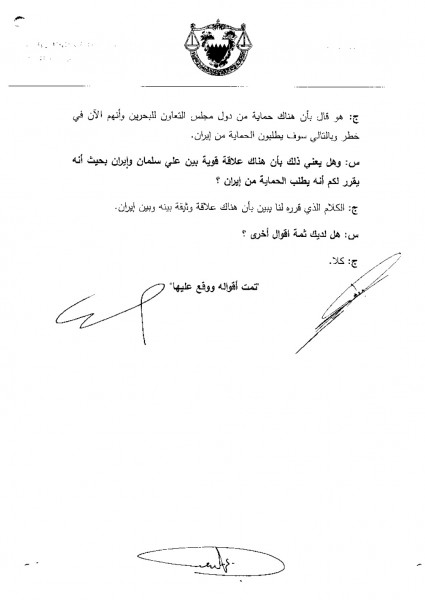 ج: هو قال بأن هناك حماية من دول مجلس التعاون للبحرين وأنهم الآن في
خطر وبالتالي سوف يطلبون الحماية من إيران.
س: وهل يعني ذلك بأن هناك علاقة قوية بين علي سلمان وإيران بحيث أنه
يقرر لكم أنه يطلب الحماية من إيران ؟
ج: الكلام الذي قرره لنا يبين بأن هناك علاقة وثيقة بينه وبين إيران.
س: هل لديك ثمة اقوال أخرى ؟
ج: كلا.
"تمت أقواله ووقع عليها"